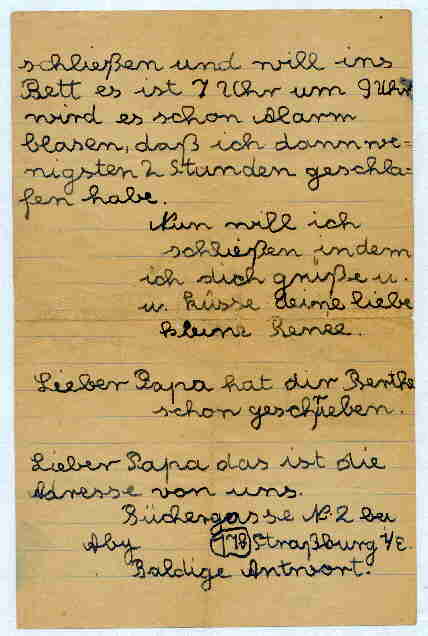 schließen und will ins
Bett es ist 7 Uhr um 9 Uhr
wird es schon Alarm
blasen, daß ich dann we=
nigsten 2 Stunden geschla=
fen habe.
Nun will ich
schließen indem
ich dich grüße u.
u. küsse deine liebe
kleine Renee.
Lieber Papa hat dir Benthe
schon geschrieben.
Lieber Papa das ist die
Adresse von uns.
Büchergasse N. 2 bei
Aby Straßburg i/E.
Baldige Antwort.